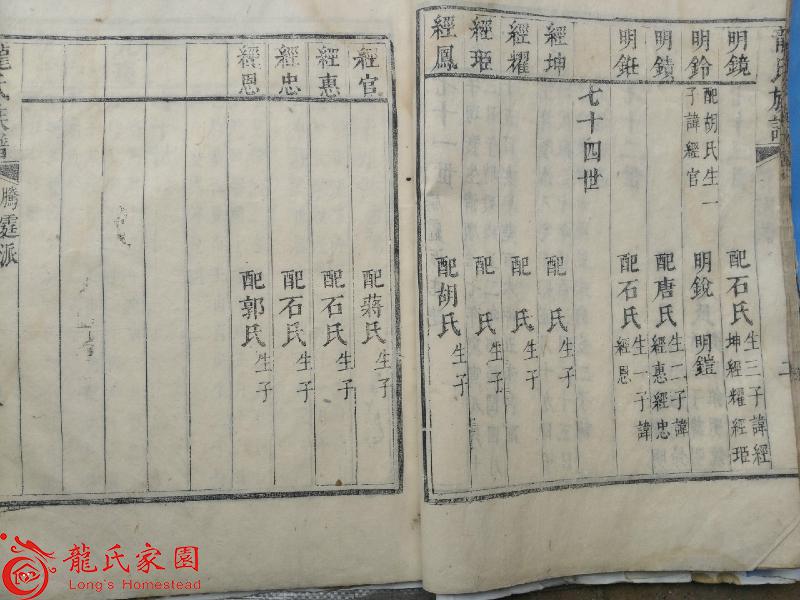 龍氏族譜
明鏡 配石氏 生三子諱經坤經耀經姬
明鈴 配胡氏生一子諱經官 明銳 明鎧
明鐀 配唐氏 生二子諱經惠經忠
明鉦 配石氏 生一子諱經恩
七十四世
經坤 配 氏 生子
經耀 配 氏 生子
經姬 配 氏 生子
經鳳 配胡氏 生子
經官 配蔣氏 生子
經惠 配石氏 生子
經忠 配石氏 生子
經恩 配郭氏 生子
龍氏族譜 騰霆派
龍氏家園
Long's Homestead